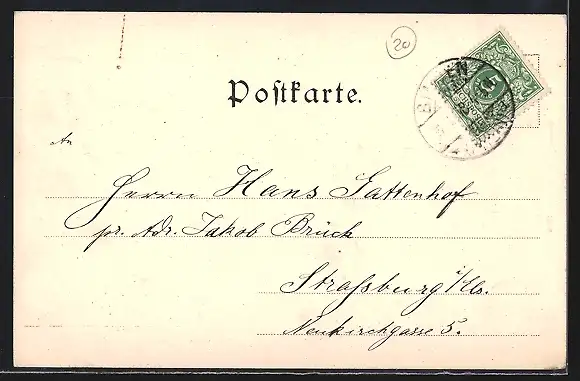 20
Postkarte.
An
Herrn Hans Gattenhof
pr. Adr. Jakob Brück
Strassburg i/Els.
Neukirchgasse 5.
5